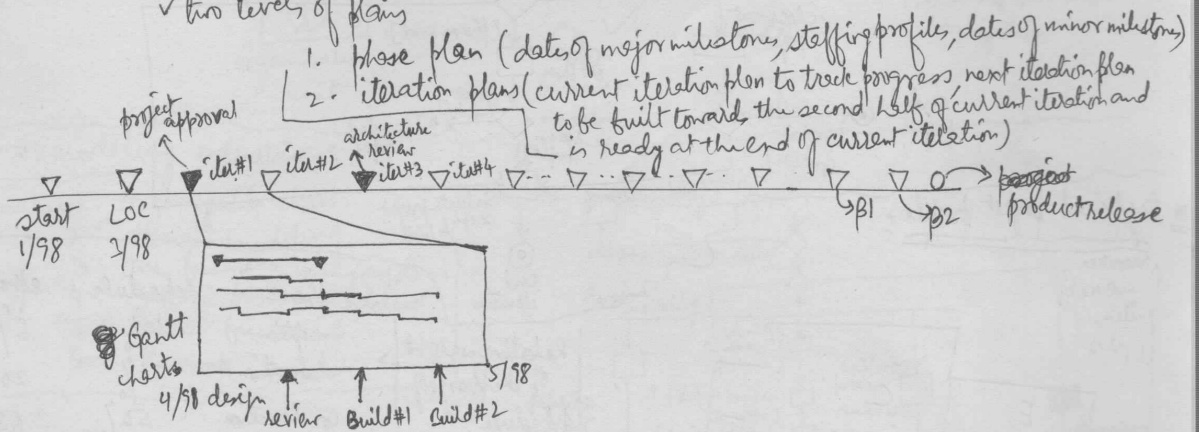 ✓ two levels of plans
1. phase plan (dates of major milestones, staffing profiles, dates of minor milestones)
2. iteration plans (current iteration plan to track progress, next iteration plan
to be built towards the second half of current iteration and
is ready at the end of current iteration)
project
approval
architecture
review
iter#1
iter#2
iter#3
iter#4
start
1/98
LOC
3/98
β1
β2
product release
Gantt
charts
4/98
5/98
design
review
Build#1
Build#2